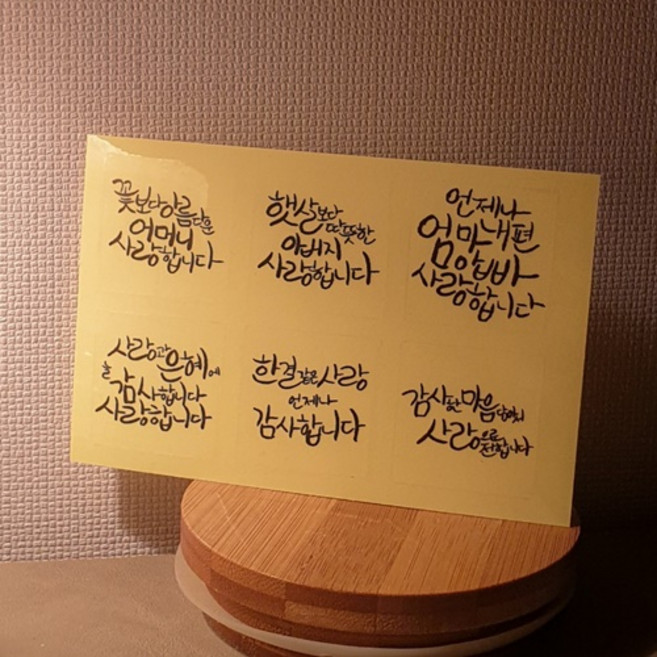 꽃보다아름다운
어머니
사랑합니다
햇살보다
따뜻한
아버지
사랑합니다
언제나
엄마내편
압빠
사랑합니다
사랑과은혜에
늘 감사합니다
사랑합니다
한결같은사랑
언제나
감사합니다
감사한마음담아
사랑으로
전합니다